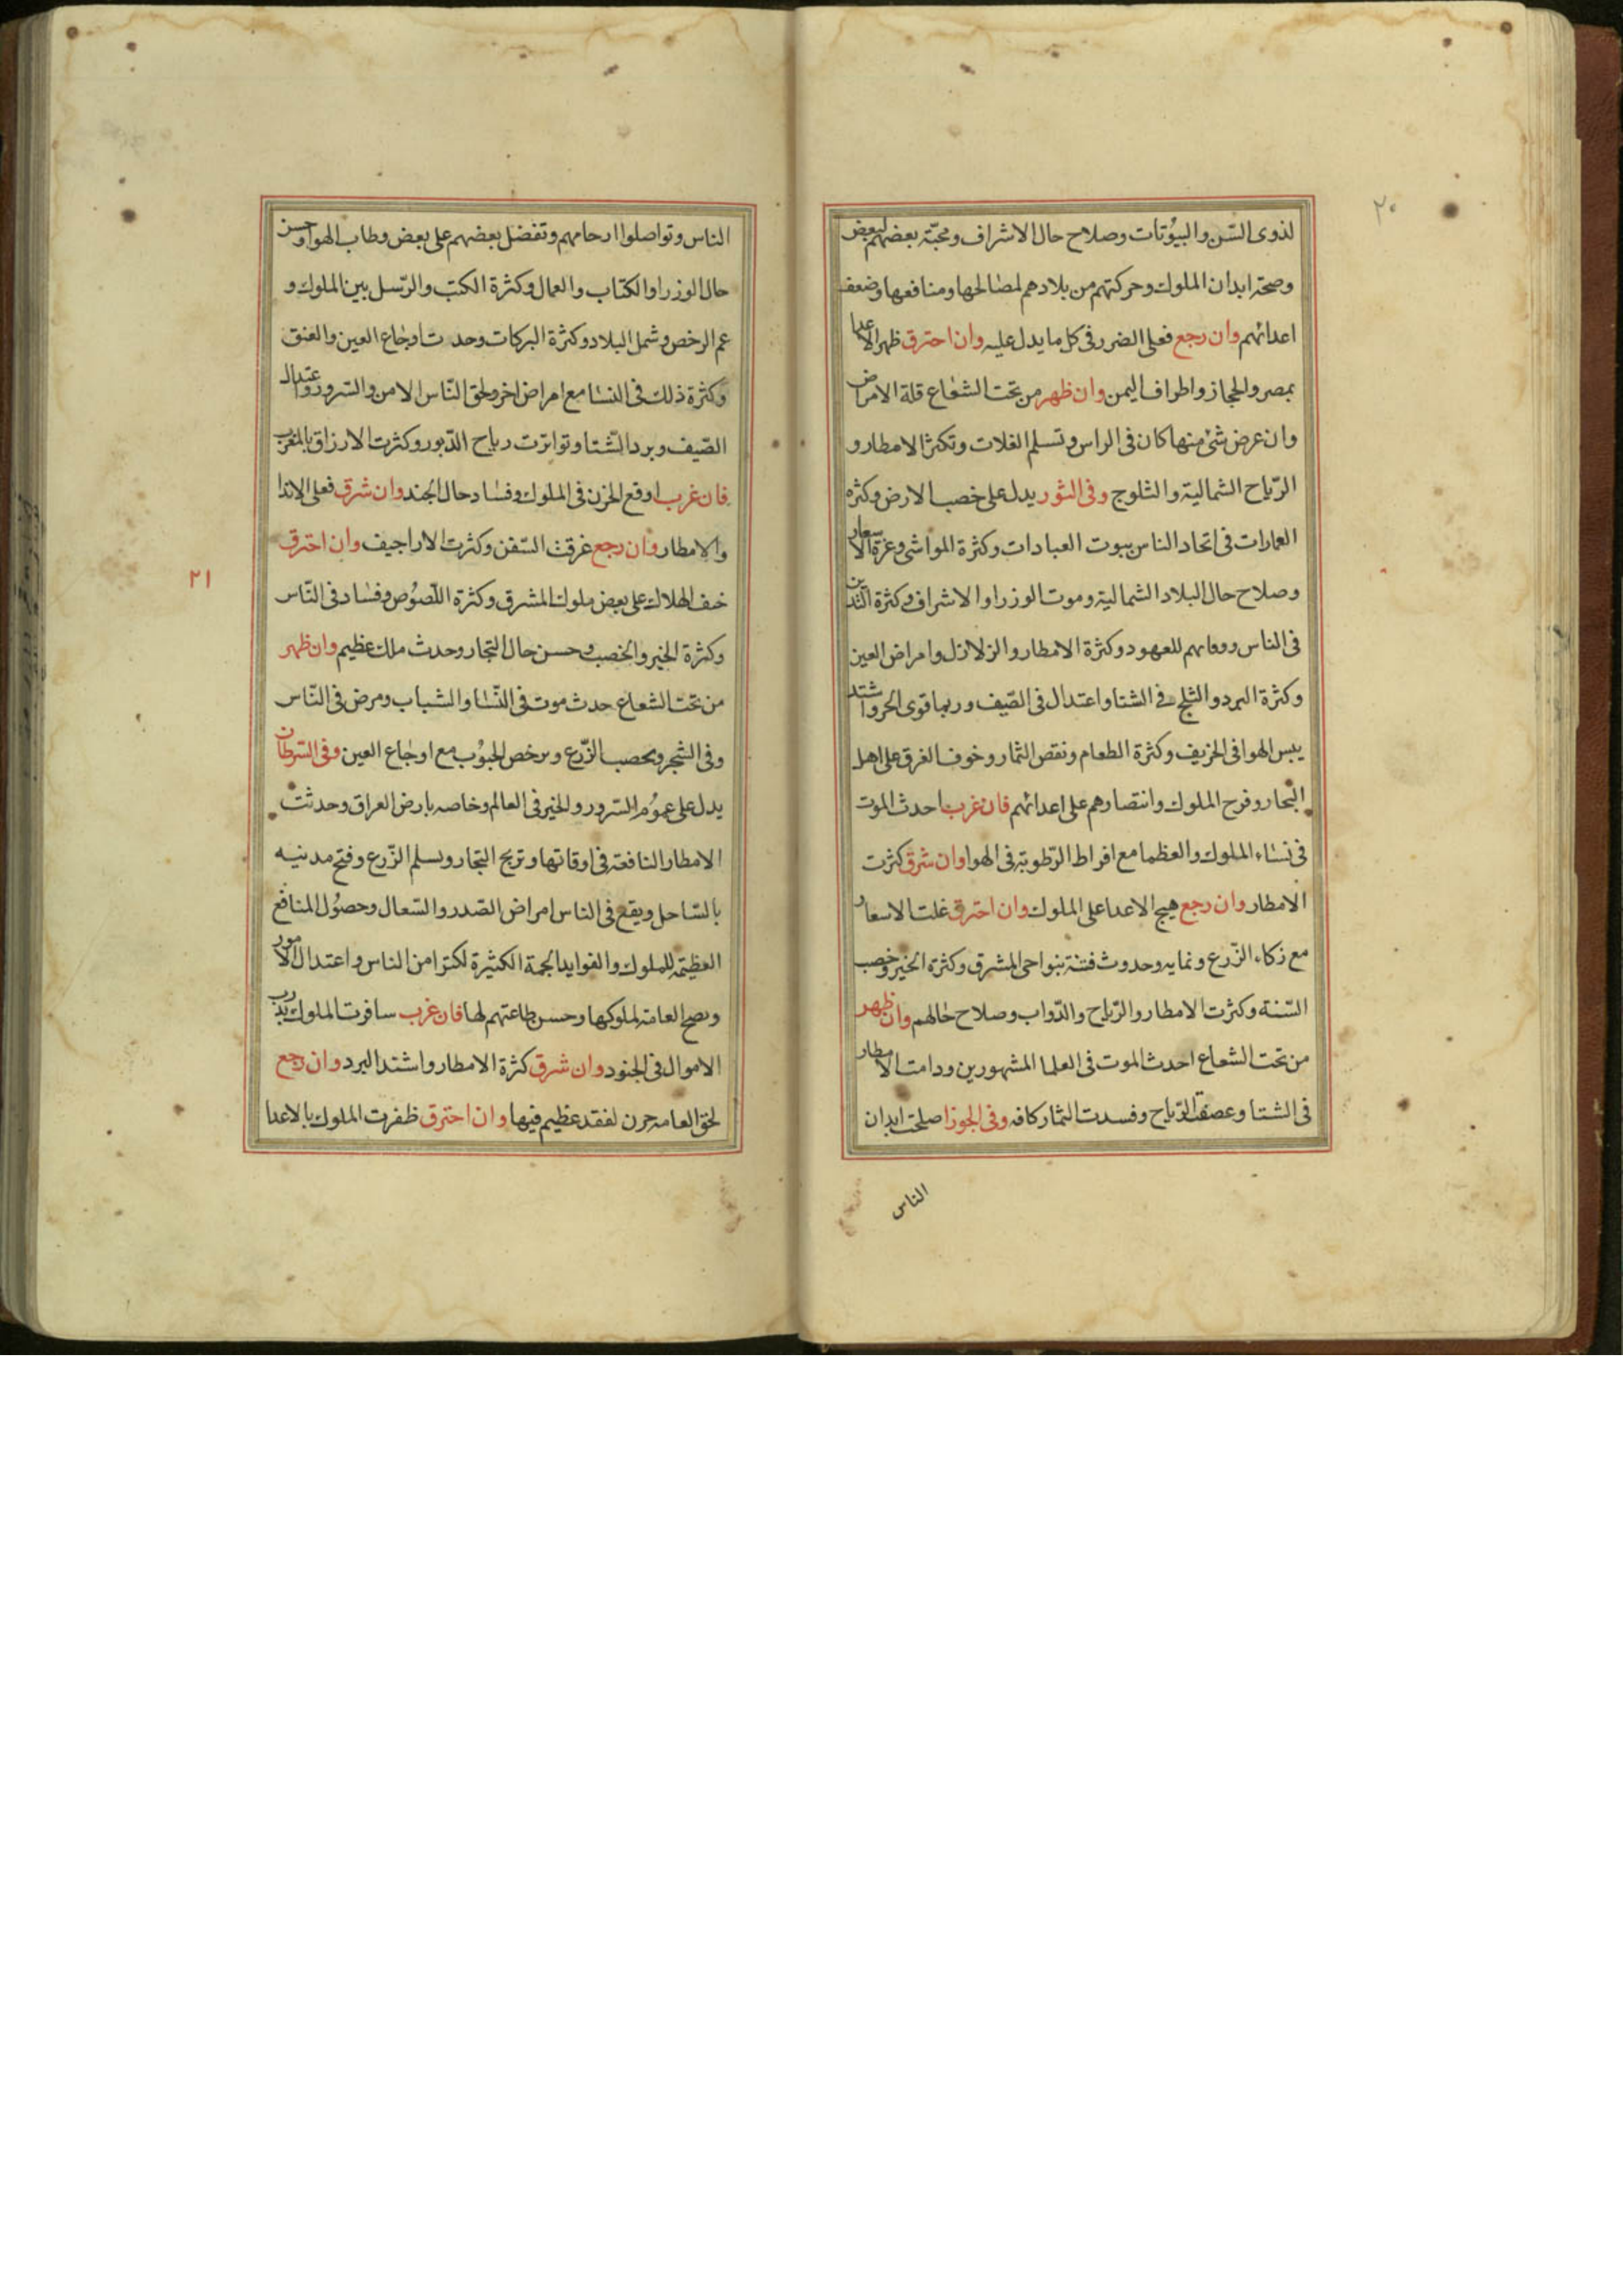 ٢٠
لذوى السّن والبيُوتات وصلاح حال الاشراف ومحبّة بعضهم لبعض
وصحة ابدان الملوك وحركتهم من بلادهم لمصالحها ومنافعها وضعف
اعدائهم وان رجع فعلى الضرر فى كل ما يدل عليه وان احترق ظهر الاعدا
بمصر والحجاز واطراف اليمن وان ظهر من تحت الشعاع قلة الامراض
وان عرض شئ منها كان فى الراس وتسلم الغلات وتكثر الامطار و
الرّياح الشمالية والثلوج وفى الثور يدل على خصب الارض وكثره
العمارات فى اتحاد الناس بيوت العبادات وكثرة المواشى وعزة الاسعار
وصلاح حال البلاد الشمالية وموت الوزرا والاشراف وكثرة التدين
فى الناس ووفايهم للعهود وكثرة الامطار والزلازل وامراض العين
وكثرة البرد والثلج فى الشتا واعتدال فى الصّيف وربما قوى الحر واشتد
يبس الهوا فى الخريف وكثرة الطعام ونقص الثمار وخوف الغرق على اهل
البحار وفرح الملوك وانتصارهم على اعدائهم فان غرب احدث الموت
فى نساء الملوك والعظما مع افراط الرّطوبة فى الهوا وان شرق كثرت
الامطار وان رجع هيج الاعدا على الملوك وان احترق غلت الاسعار
مع زكاء الزّرع ونمايه وحدوث فتنة بنواحى المشرق وكثرة الخير وخصب
السّنة وكثرت الامطار والرّياح والدّواب وصلاح حالهم وان ظهر
من تحت الشعاع احدث الموت فى العلما المشهورين ودامت الامطار
فى الشتا وعصفت الرّياح وفسدت الثمار كافه وفى الجوزا صلحت ابدان
الناس
الناس وتواصلوا ارحامهم وتفضل بعضهم على بعض وطاب الهوا وحسن
حال الوزرا والكتاب والعمال وكثرة الكتب والرّسل بين الملوك و
عم الرخص وشمل البلاد وكثرة البركات وحدثت اوجاع العين والعنق
وكثرة ذلك فى النسا مع امراض اخر ولحق النّاس الامن والسّرور واعتدال
الصّيف وبرد الشّتا وتواترت رياح الدّبور وكثرت الارزاق بالمغرب
فان غرب اوقع الحزن فى الملوك وفساد حال الجند وان شرق فعلى الاندا
والامطار وان رجع غرقت السّفن وكثرت الاراجيف وان احترق
خف الهلاك على بعض ملوك المشرق وكثرة اللّصُوص وفساد فى النّاس
وكثرة الخير والخصب وحسن حال التجار وحدث ملك عظيم وان ظهر
من تحت الشعاع حدث موت فى النّسا والشباب ومرض فى النّاس
وفى الشجر ويخصب الزّرع ويرخص الحبُوب مع اوجاع العين وفى السّرطان
يدل على عمُوم السّرور والخير فى العالم وخاصه بارض العراق وحدثت
الامطار النافعة فى اوقاتها وتربح التجار ويسلم الزّرع وفتح مدنيه
بالسّاحل ويقع فى الناس امراض الصّدر والسّعال وحصُول المنافع
العظيمة للملوك والفوايد الجمة الكثيرة لكثرا من الناس واعتدال الامور
ونصح العامة لملوكها وحسن طاعتهم لها فان غرب سافرت الملوك
الاموال فى الجنود وان شرق كثرة الامطار واشتد البرد وان رجع
لحق العامه حزن لفقد عظيم فيها وان احترق ظفرت الملوك بالاعدا
٢١